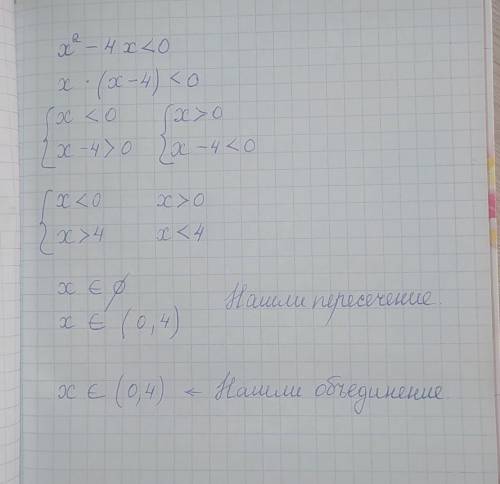 x² - 4x < 0
x · (x - 4) < 0
{ x < 0 { x > 0
{ x - 4 > 0 { x - 4 < 0
{ x < 0 x > 0
{ x > 4 x < 4
x ∈ ∅
Нашли пересечение.
x ∈ (0,4)
x ∈ (0,4) ← Нашли объединение